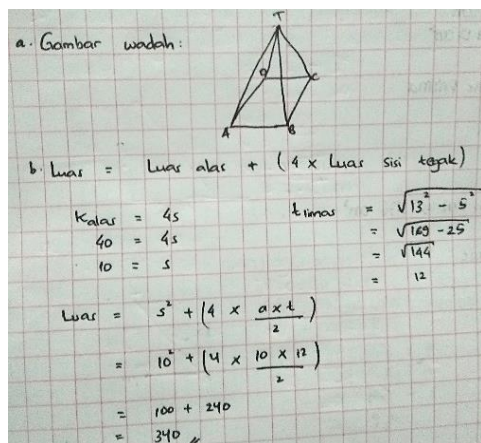 a. Gambar wadah:
T
D C
A B
b. Luas = Luas alas + (4 x Luas sisi tegak)
Kalas = 4s
40 = 4s
10 = s
t limas = √13² - 5²
= √169 - 25
= √144
= 12
Luas = s² + (4 x a x t / 2)
= 10² + (4 x 10 x 12 / 2)
= 100 + 240
= 340 //